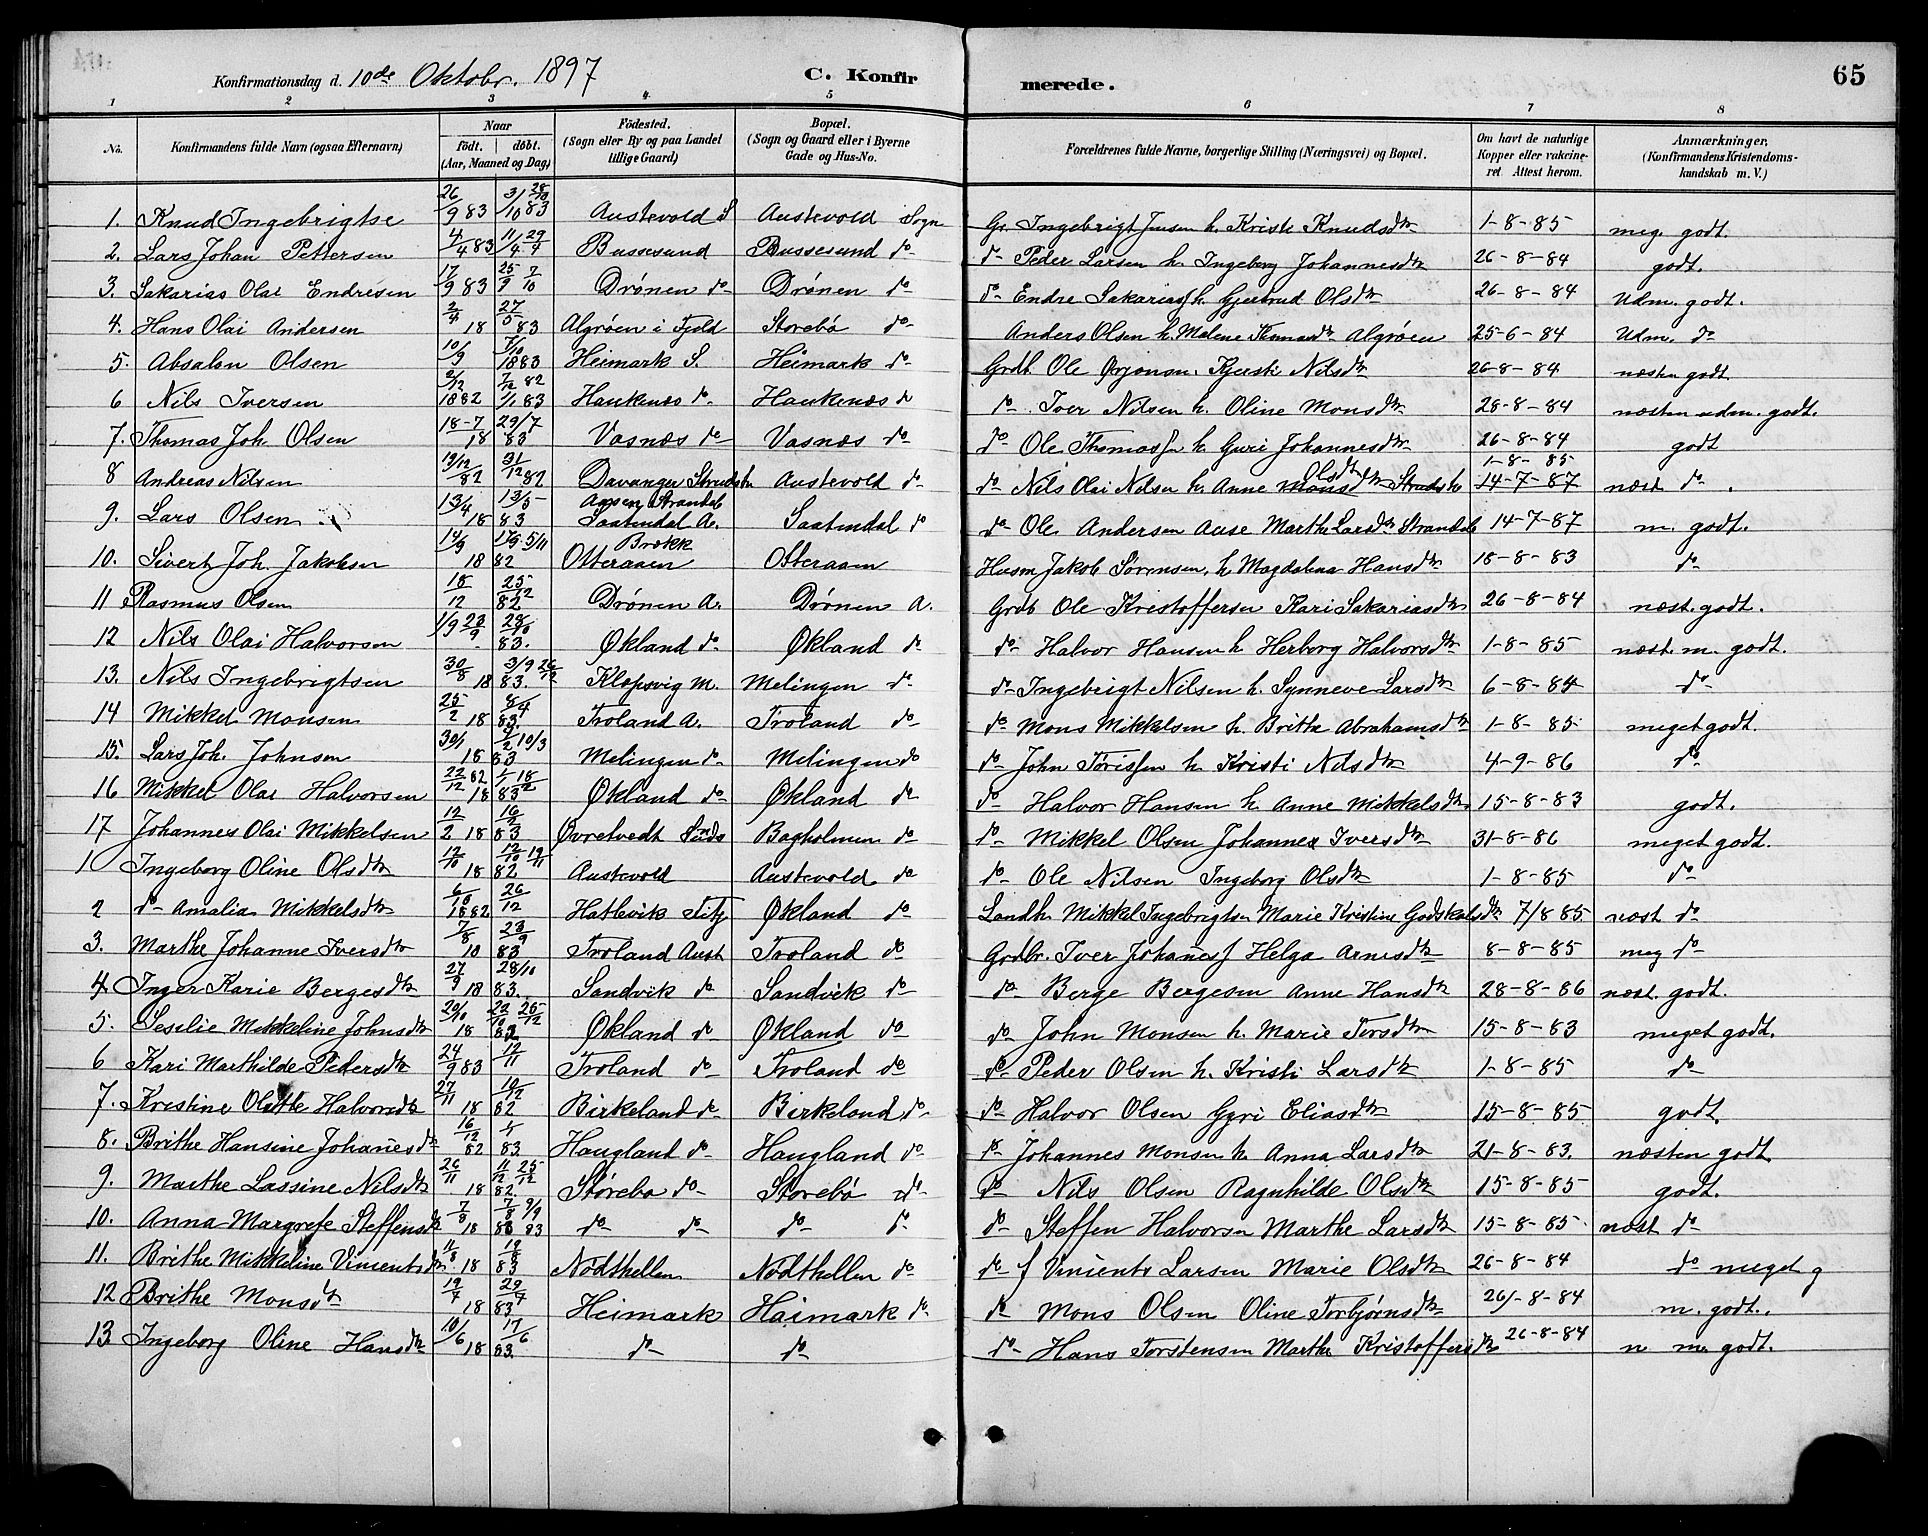 Konfirmationsdag d. 10de Oktobr. 1897 C. Konfirmerede. 65
1 2 3 4 5 6 7 8
No. Konfirmandens fulde Navn (ogsaa Efternavn) Naar født. døbt. (Aar, Maaned og Dag) Födested. (Sogn eller By og paa Landet tillige Gaard) Bopæl. (Sogn og Gaard eller i Byerne Gade og Hus-No. Forældrenes fulde Navne, borgerlige Stilling (Næringsvei) og Bopæl. Om havt de naturlige Kopper eller vakcineret Attest herom. Anmærkninger, (Konfirmandens Kristendomskundskab m. V.)
1. Knud Ingebrigtse 26/9 83 3/10 28/10 83 Austevold S Austevold Sogn Gr. Ingebrigt Jensen h. Kristi Knudsdtr 1-8-85 meg. godt.
2. Lars Johan Pettersen 4/4 83 11/4 29/4 Bussesund Bussesund do do Peder Larsen h. Ingeborg Johannesdtr 26-8-84 godt.
3. Sakarias Olai Endresen 17/9 83 25/9 7/10 Drönen do Drönen do do Endre Sakarias h. Gjertrud Olsdtr 26-8-84 Udm. godt.
4. Hans Olai Andersen 2/4 18 27/5 83 Algröen i Fjeld Storebö do Anders Olsen h. Malene Algröen 25-6-84 Udm. do
5. Absalon Olsen 10/9 7/10 1883 Heimark S. Heimark do Grdb. Ole Kjersti Nilsdtr 26-8-84 næsten godt
6 Nils Iversen 2/12 1882 7/12 82 7/1 83 Haukenæs do Haukenæs do do Iver Nilsen h. Oline Monsdtr 28-8-84 næsten udm. godt.
7. Thomas Joh Olsen 18-7 18 29/7 83 Vasnæs do Vasnæs do do Ole Thomas h Guri Johannesdtr 26-8-84 godt
8 Andreas Nilsen 19/12 82 31/12 82 Davanger Austevold do do Nils Olai Nilsen h. Anne Olsdtr 1-8-85 14-7-87 næst do
9. Lars Olsen 13/4 18 13/5 83 Strandeb Saatendal A. Saatendal do do Ole Andersen Aase Marthe Larsdtr Strandeb 14-7-87 m. godt.
10. Sivert Joh. Jakobsen 14/9 18 17/9 5/11 82 Brekk Osteraaen Osteraaen Husm Jakob Sörensen, h Magdalena Hansdtr 18-8-83 do
11 Rasmus Olsen 18/12 25/12 82 Drönen A. Drönen A. Grdb Ole Kristoffersen Kari Sakariasdtr 26-8-84 næst. godt.
12 Nils Olai Halvorsen 1/9 23/9 28/10 83. Økland do Økland do do Halvor Hansen h Herborg Halvorsdtr 1-8-85 næst. m. godt.
13. Nils Ingebrigtsen 30/8 18 3/9 26/12 83. Klepsvig M. Melingen do do Ingebrigt Nilsen h. Synneve Larsdtr 6-8-84 do
14 Mikkel Monsen 25/2 18 8/4 83 Troland A. Troland do do Mons Mikkelsen h. Britha Abrahamsdtr 1-8-85 meget godt.
15. Lars Joh. Johnsen 30/1 18 4/2 10/3 83 Melingen do Melingen do do John h. Kristi Nilsdtr 4-9-86 do
16 Mikkel Olai Halvorsen 22/12 82 18 1/1 18/2 83 Økland do Økland do do Halvor Hansen h. Anne Mikkelsdtr 15-8-83 godt.
17 Johannes Olai Mikkelsen 12/2 18 16/2 83 Øvretvedt Bagholmen do do Mikkel Olsen Johanne Iversdtr 31-8-86 meget godt.
1 Ingeborg Oline Olsdtr 12/10 18 12/10 19/11 82 Austevold Austevold do do Ole Nilsen Ingeborg Olsdtr 1-8-85 do
2 do Amalia Mikkelsdtr 6/10 1882 26/12 Hatlevik Fitj Økland do Landh. Mikkel Ingebrigtsen Marie Kristine Godskalsdtr 7/8 85 næst do
3. Marthe Johanne Iversdtr 7/8 18 23/9 83 Troland Aust Troland do Grdbr. Iver Johanes Helga Arnesdtr 8-8-85 meg do
4 Inger Karie Bergesdtr 27/9 18 28/10 83. Sandvik do Sandvik do do Berge Bergesen Anne Hansdtr 28-8-86 næst. godt.
5. Sesilie Mikkeline Johnsdtr 20/10 18 22/10 25/12 82 Økland do Økland do do John Monsen h. Marie Torsdtr 15-8-83 meget godt.
6 Kari Marthilde Pedersdtr 24/9 83 12/11 Troland do Troland do do Peder Olsen h. Kristi Larsdtr 1-8-85 do
7. Kristine Olette Halvorsdtr 27/11 18 10/12 82 Birkeland do Birkeland do do Halvor Olsen Gyri Eliasdtr 15-8-85 godt.
8. Brithe Hansine Johanesdtr 16/12 82 1/1 83 Haugland do Haugland do do Johannes Monsen h. Anna Larsdtr 21-8-83. næsten godt
9. Marthe Lassine Nilsdtr 26/11 18 11/12 25/12 82 Störebo do Storebö do do Nils Olsen Ragnhilde Olsdtr 15-8-85 godt.
10. Anna Margrete Steffensdtr 7/8 18 7/8 9/9 83 83 do do do do do Steffen Halvorsen Marthe Larsdtr 15-8-85. næst do
11. Brithe Mikkeline Vincentsdtr 11/8 18 19/8 83 Nödthellen Nödthellen do do f Vincents Larsen Marie Olsdtr 26-8-84 do meget g
12 Brithe Monsdtr 19/4 18 29/4 83 Heimark Haimark do do Mons Olsen Oline Torbjörnsdtr 26-8-84 m. godt.
13 Ingeborg Oline Hansdtr 10/6 18 17/6 83. do do do Hans Torstensen Marthe Kristoffersdtr 26-8-84 n me godt.